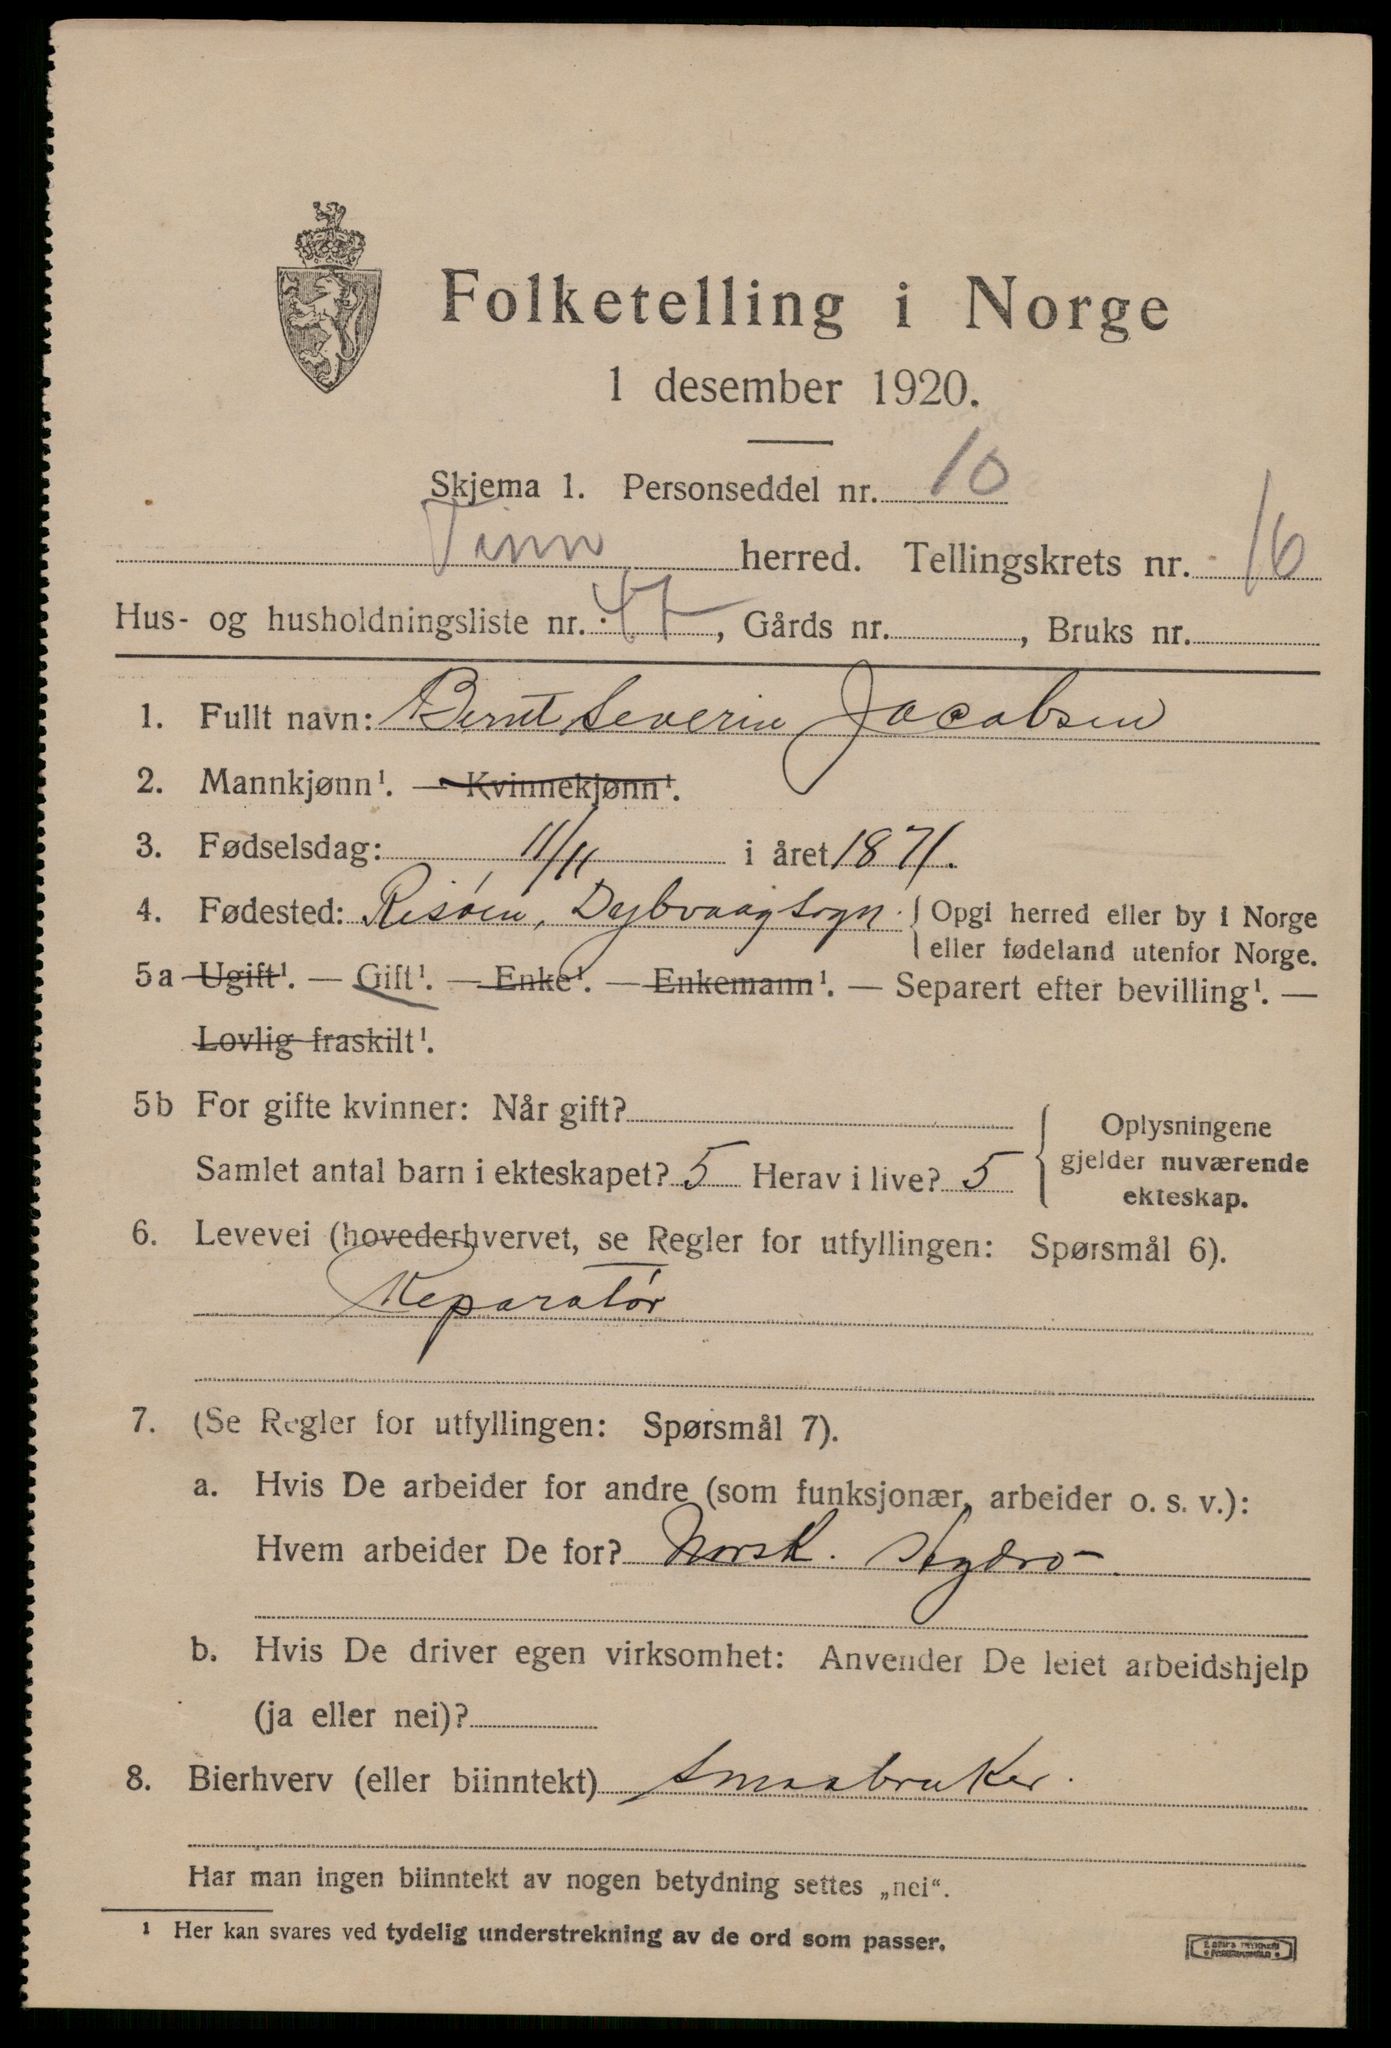 Folketelling i Norge
1 desember 1920.
Skjema 1. Personseddel nr. 10
Tinn herred. Tellingskrets nr. 16
Hus- og husholdningsliste nr. 47, Gårds nr. , Bruks nr.
1. Fullt navn: Bernt Severin Jacobsen
2. Mannkjønn¹. — Kvinnekjønn¹.
3. Fødselsdag: 11/11 i året 1871.
4. Fødested: Risøen, Dybvaag sogn. { Opgi herred eller by i Norge
eller fødeland utenfor Norge.
5a Ugift¹. — Gift¹. — Enke¹. — Enkemann¹. — Separert efter bevilling¹. —
Lovlig fraskilt¹.
5b For gifte kvinner: Når gift?
Samlet antal barn i ekteskapet? 5 Herav i live? 5
{ Oplysningene
gjelder nuværende
ekteskap.
6. Levevei (hovederhvervet, se Regler for utfyllingen: Spørsmål 6).
Reparatør
7. (Se Regler for utfyllingen: Spørsmål 7).
a. Hvis De arbeider for andre (som funksjonær, arbeider o. s. v.):
Hvem arbeider De for? Norsk. Hydro
b. Hvis De driver egen virksomhet: Anvender De leiet arbeidshjelp
(ja eller nei)?
8. Bierhverv (eller biinntekt) Smaabruker.
Har man ingen biinntekt av nogen betydning settes „nei“.
¹ Her kan svares ved tydelig understrekning av de ord som passer.